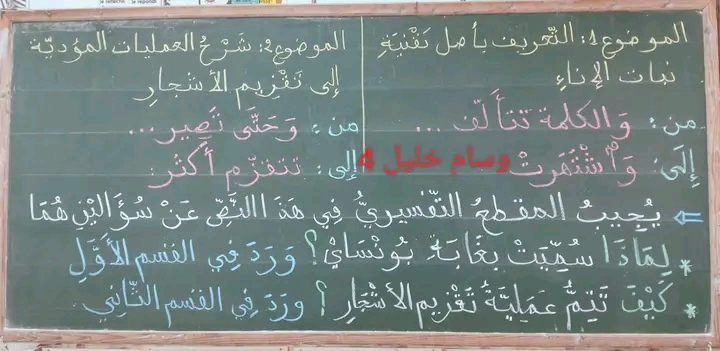 الموضوع 1: التّعريف بأصل تَقْنيةِ نبات الإناءِ
من: وَالكلمة تتألّف ...
إِلَى: وَاشْتَهَرتْ
الموضوع 2: شَرْحُ العمليات المؤديّة إلى تَقْزيم الأشجارِ
من: وَحَتَّى تَصِير ...
إلى: تتقزّم أكثر:
وسام خليل 4
⇐ يُجِيبُ المقطعُ التّفْسيريُّ فِي هَذَا النَّصِّ عَنْ سُؤَالَيْنِ هُمَا
* لِمَاذَا سُمِّيَتْ بِغَابَةِ بُونْسَايْ؟ وَرَدَ فِي القسم الأَوَّلِ
* كَيْفَ تَتِمُّ عَمَلِيَّةُ تَقْزِيم الأشْجَارِ؟ وردَ في القسم الثّانِي.